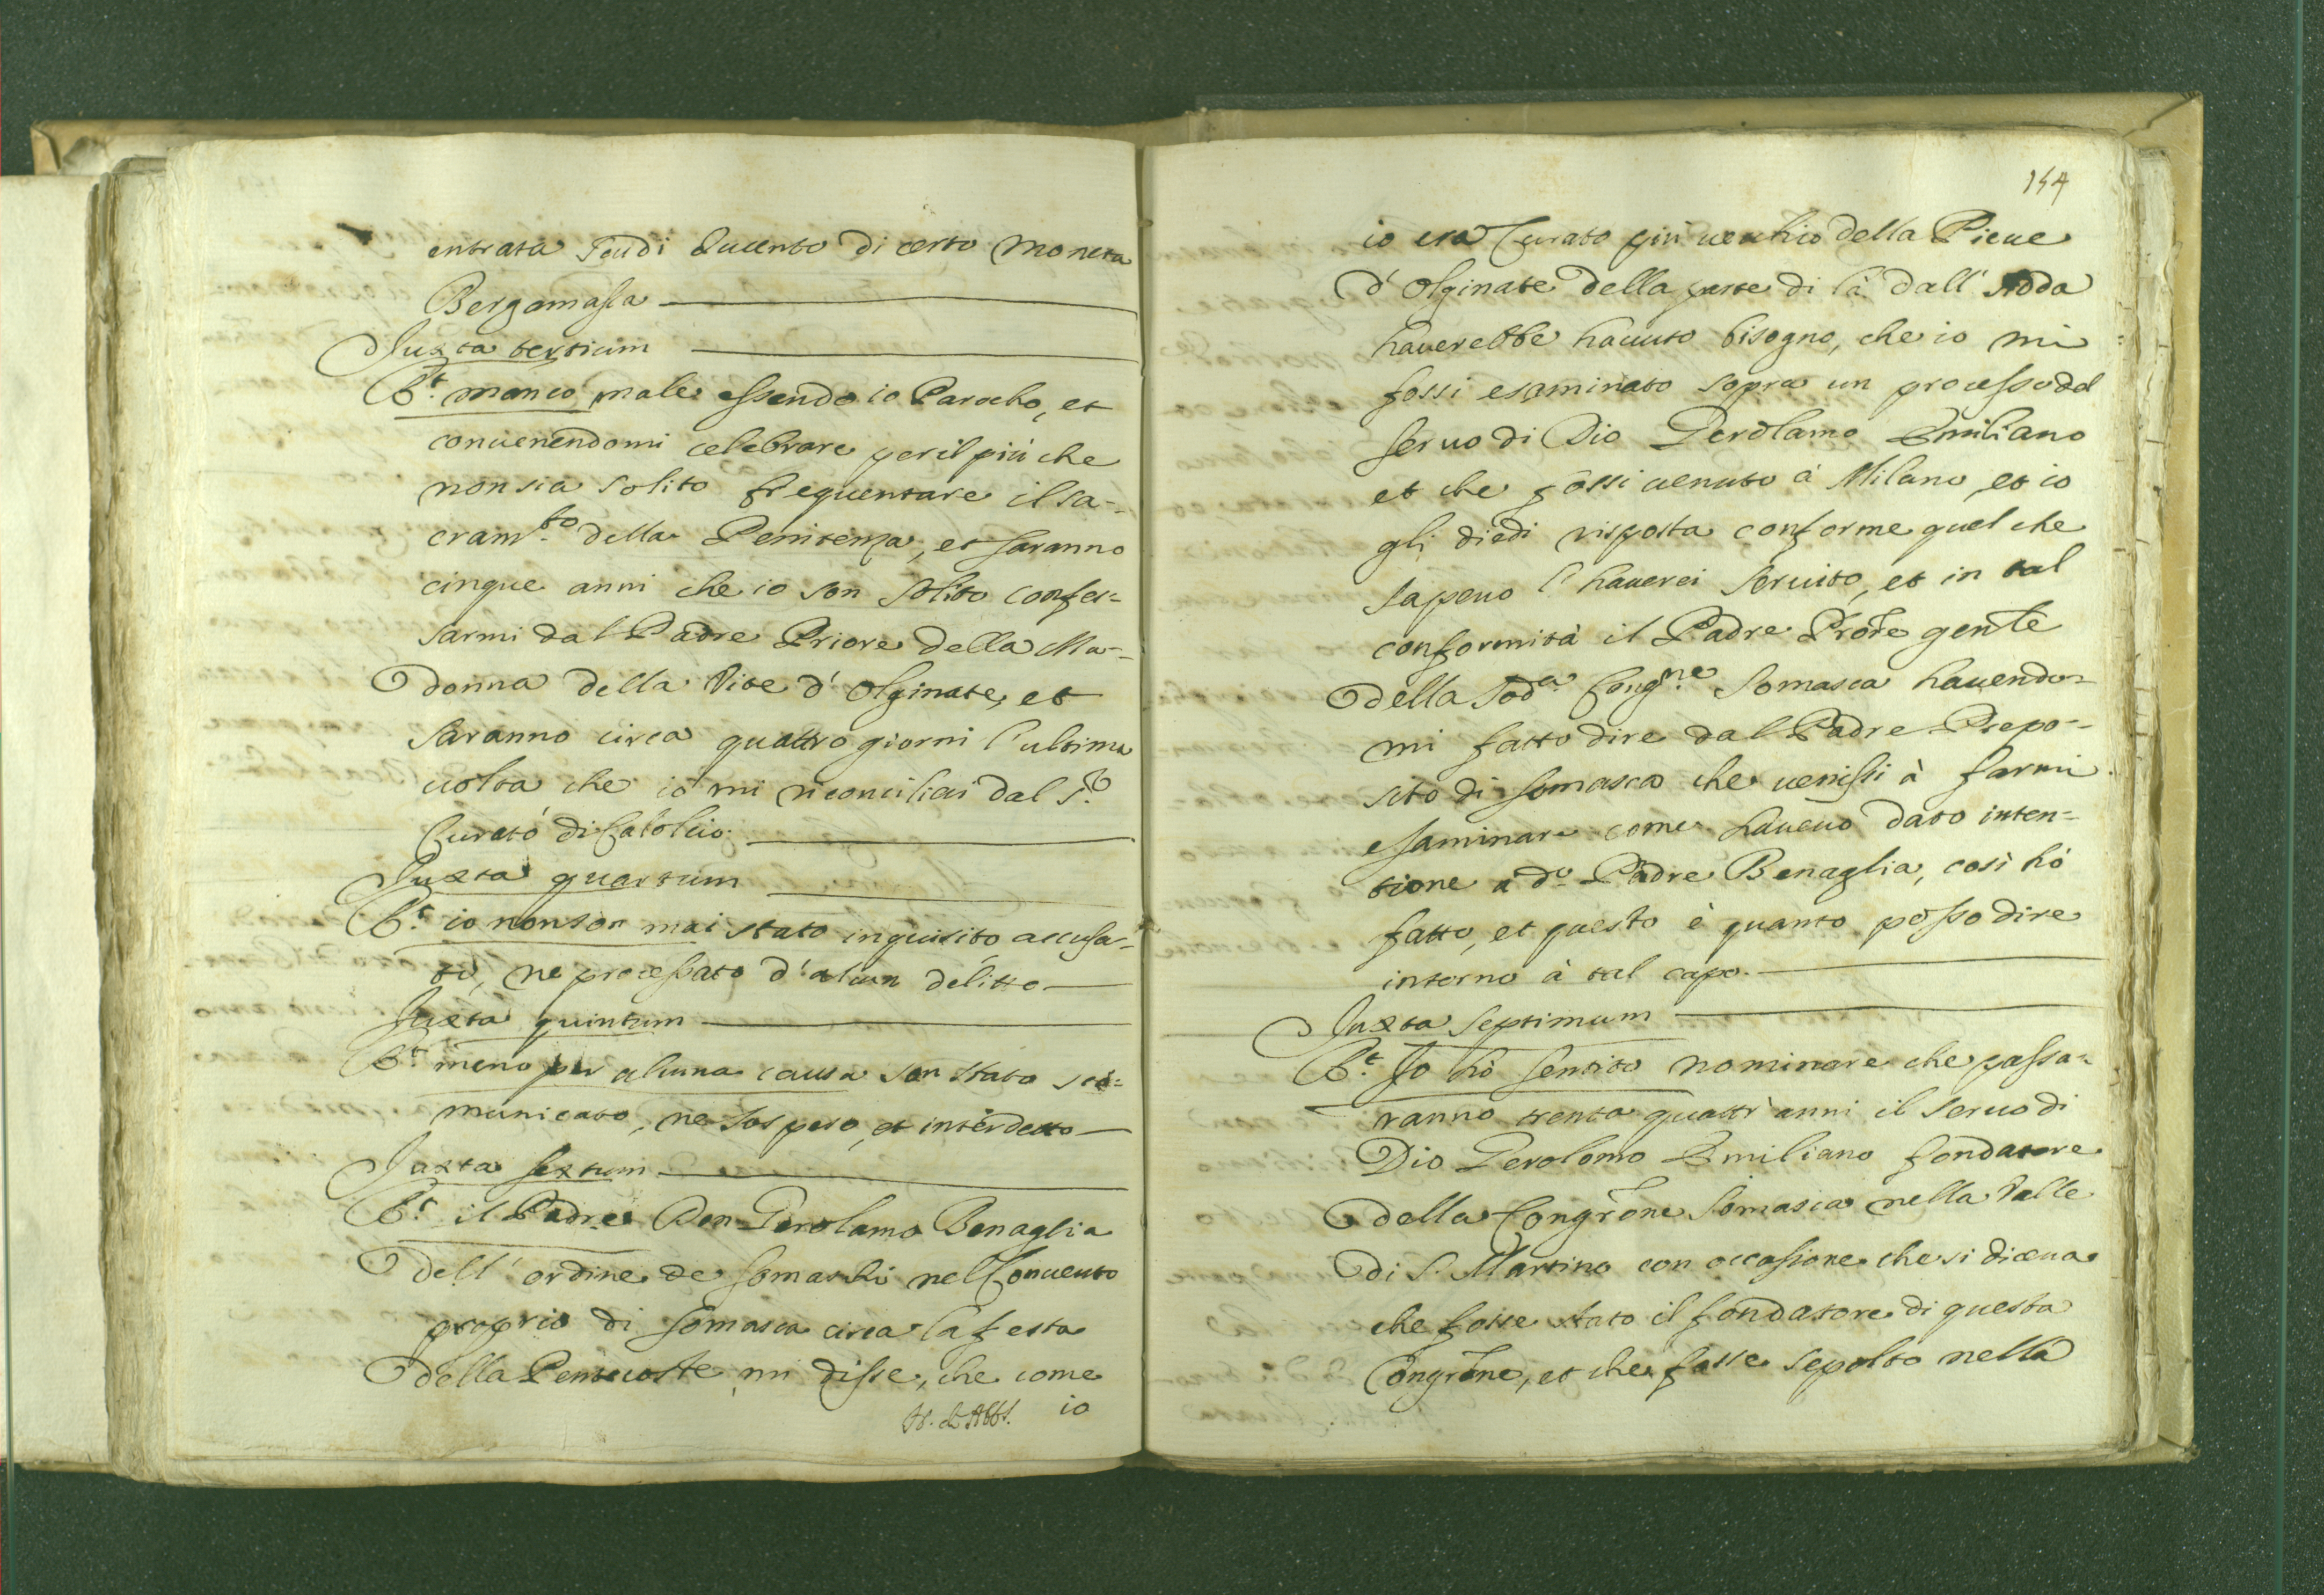 entrata scudi ducento di certo moneta
Bergamasca
Juxta tertium
R.t manco male essendo io Parocho, et
conuenendomi celebrare per il più che
non sia solito frequentare il sa-
cram.to della Penitenza, et saranno
cinque anni che io son solito confes-
sarmi dal Padre Priore della Ma-
donna della Vite d'Olginate, et
saranno circa quattro giorni l'ultima
uolta che io mi riconciliai dal S.r
Curato di Calolcio.
Juxta quartum
R.t io non son mai stato inquisito accusa-
to, ne processato d'alcun delitto
Juxta quintum
R.t meno per alcuna causa son stato sco-
municato, ne sospeso, et interdetto
Juxta sextum
R.t il Padre Don Gerolamo Benaglia
dell'ordine de Somaschi nel Conuento
proprio di Somasca circa la festa
della Pentecoste mi disse, che come
io
154
io era Curato più uecchio della Pieue
d'Olginate della parte di là dall'Adda
hauerebbe hauuto bisogno, che io mi
fossi esaminato sopra un processo del
seruo di Dio Gerolamo Emiliano
et che fossi uenuto à Milano, et io
gli diedi risposta conforme quel che
sapeuo l'hauerei seruito, et in tal
conformità il Padre Prore genle
della sod.a Cong.ne Somasca hauendo-
mi fatto dire dal Padre Prepo-
sito di Somasca che uenissi à farmi
essaminare come haueuo dato inten-
tione à d.o Padre Benaglia, così hò
fatto, et questo è quanto posso dire
intorno à tal capo.
Juxta septimum
R.t Io hò sentito nominare che passa-
ranno trenta quattr'anni il seruo di
Dio Gerolomo Emiliano fondatore
della Congrone Somasca nella Valle
di S. Martino con occasione che si diceua
che fosse stato il fondatore di questa
Congrone, et che fosse sepolto nella